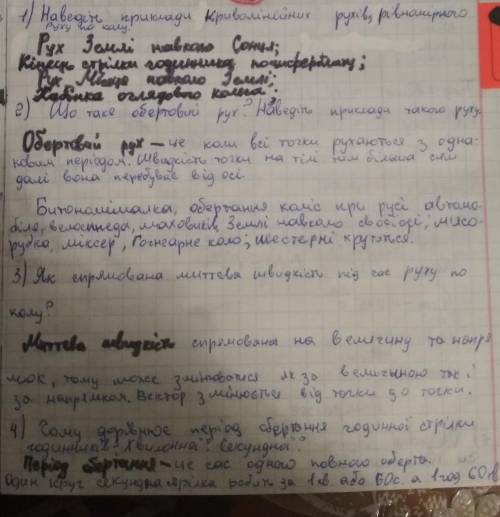 1) Наведіть приклади криволінійних рухів, рівномірного
руху по колу.
Рух Землі навколо Сонця;
Кінець стрілки годинника по циферблату;
Рух Місяця навколо Землі;
Кабінка оглядового колеса.
2) Що таке обертовий рух? Наведіть приклади такого руху.
Обертовий рух – це коли всі точки рухаються з одна-
ковим періодом. Швидкість точки на тілі тим більша чим
далі вона перебуває від осі.
Бетономішалка, обертання коліс при русі автомо-
біля, велосипеда, маховиків, Землі навколо своєї осі; мясо-
рубка, міксер, Гончарне коло; шестерні крутяться.
3) Як спрямована миттєва швидкість під час руху по
колу?
Миттєва швидкість спрямована на величину та напря
мок, тому може змінюватися як за величиною так і
за напрямком. Вектор змінюється від точки до точки.
4) Чому дорівнює період обертання годинної стрілки
годинника? Хвилинної? Секундної?
Період обертання – це час одного повного оберта.
Один круг секундна стрілка робить за 1 хв або 60с. а 1 год 60 хв